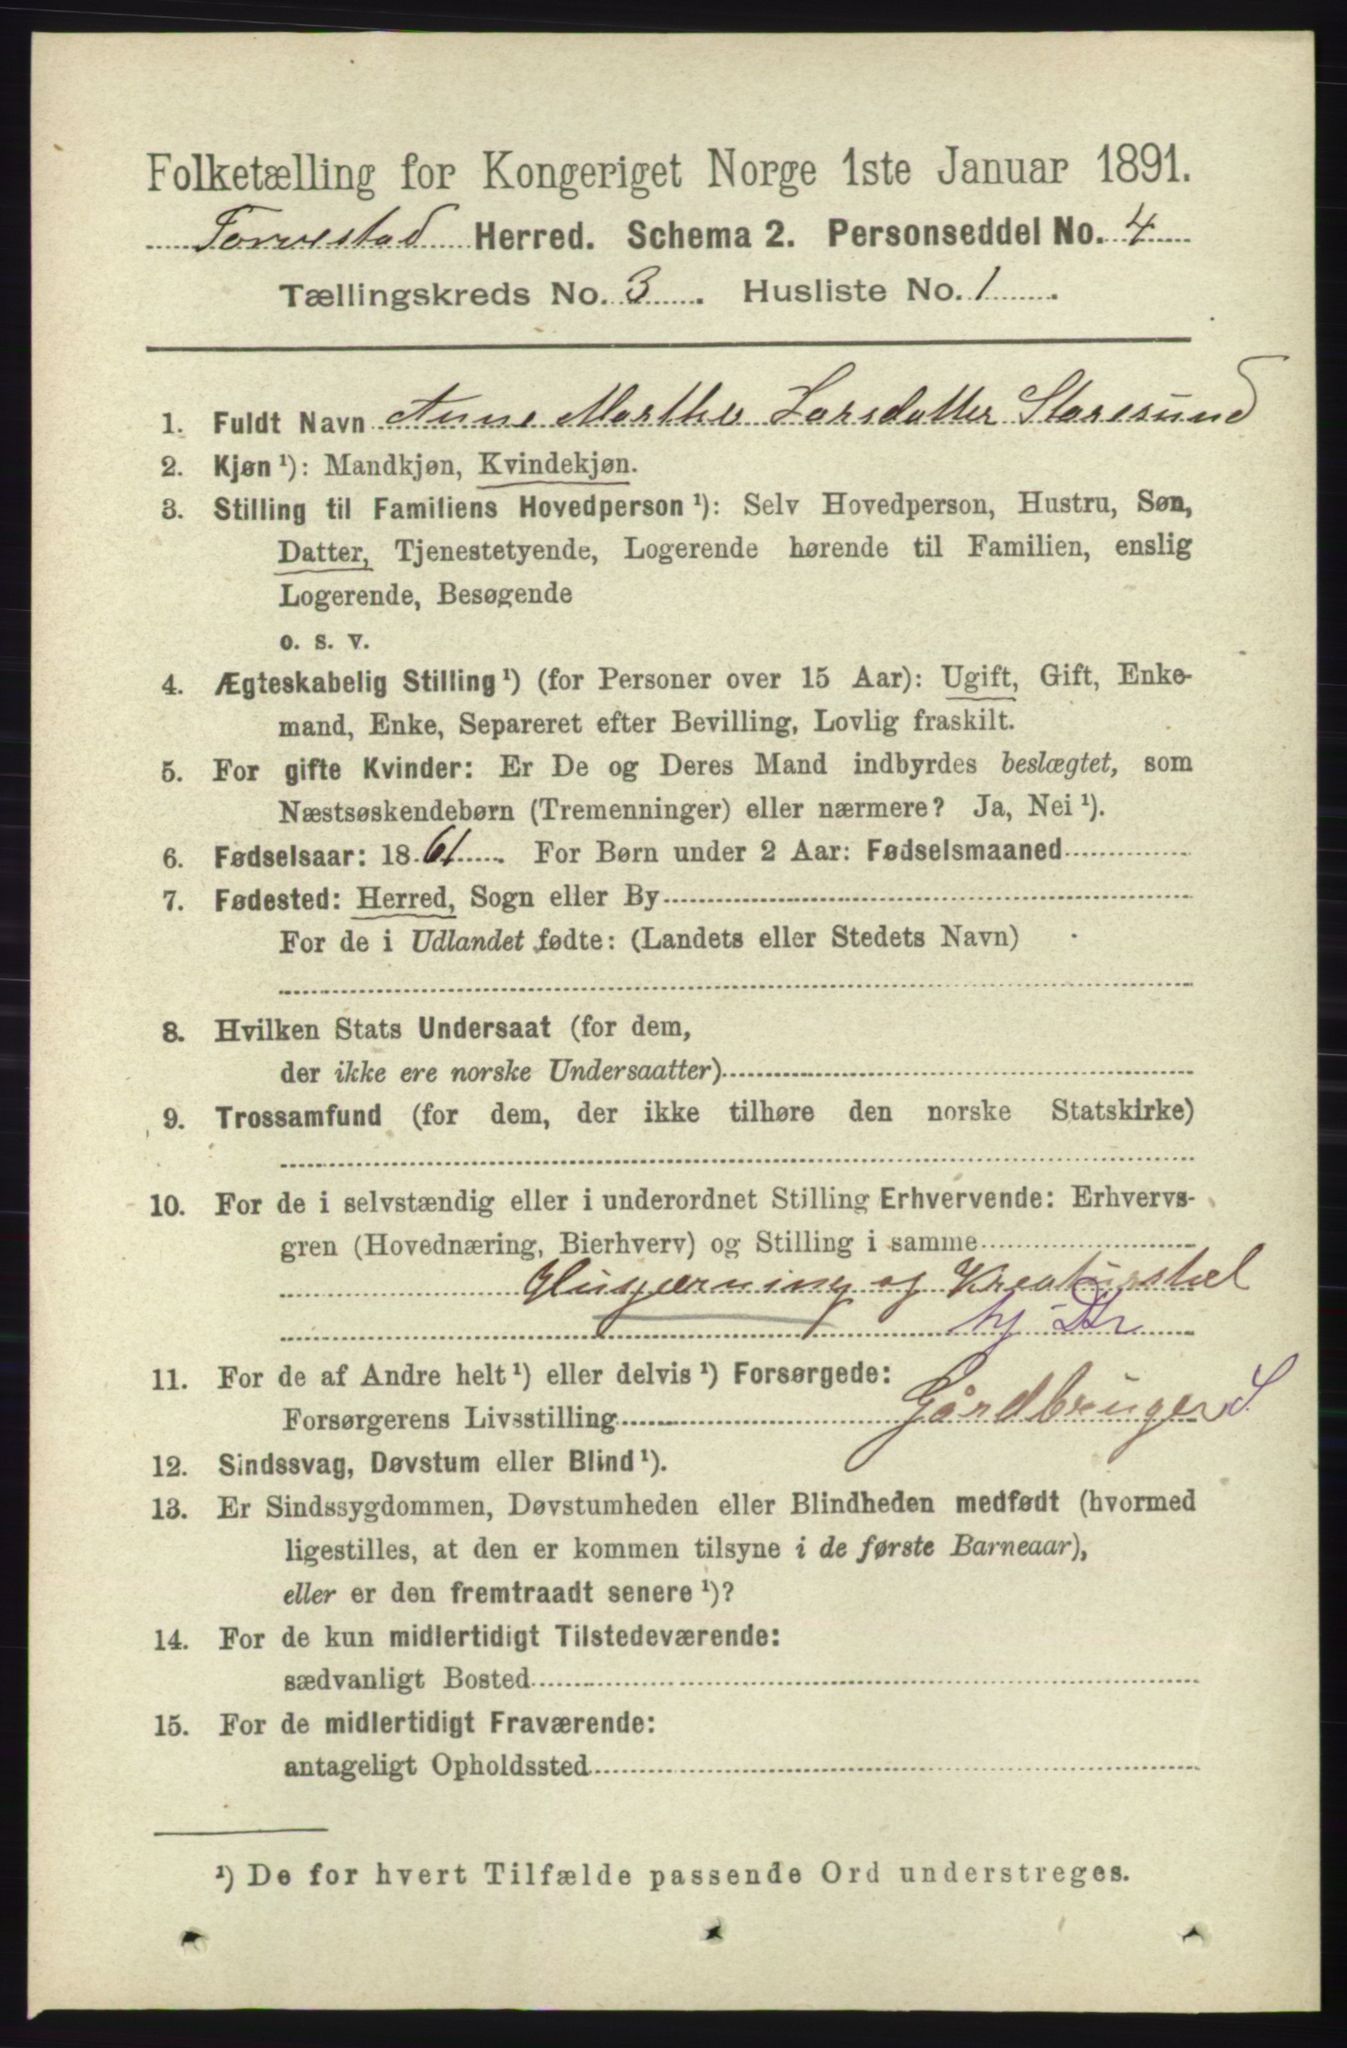 Folketælling for Kongeriget Norge 1ste Januar 1891.
Torvestad Herred. Schema 2. Personseddel No. 4
Tællingskreds No. 3. Husliste No. 1.
1. Fuldt Navn Anne Marthe Larsdatter Storesund
2. Kjøn ¹): Mandkjøn, Kvindekjøn.
3. Stilling til Familiens Hovedperson ¹): Selv Hovedperson, Hustru, Søn,
Datter, Tjenestetyende, Logerende hørende til Familien, enslig
Logerende, Besøgende
o. s. v.
4. Ægteskabelig Stilling ¹) (for Personer over 15 Aar): Ugift, Gift, Enke-
mand, Enke, Separeret efter Bevilling, Lovlig fraskilt.
5. For gifte Kvinder: Er De og Deres Mand indbyrdes beslægtet, som
Næstsøskendebørn (Tremenninger) eller nærmere? Ja, Nei ¹).
6. Fødselsaar: 1861. For Børn under 2 Aar: Fødselsmaaned
7. Fødested: Herred, Sogn eller By
For de i Udlandet fødte: (Landets eller Stedets Navn)
8. Hvilken Stats Undersaat (for dem,
der ikke ere norske Undersaatter)
9. Trossamfund (for dem, der ikke tilhøre den norske Statskirke)
10. For de i selvstændig eller i underordnet Stilling Erhvervende: Erhvervs-
gren (Hovednæring, Bierhverv) og Stilling i samme
Husgjerning og Kreaturstel
hj. Dtr
11. For de af Andre helt ¹) eller delvis ¹) Forsørgede:
Forsørgerens Livsstilling Gårdbruger S
12. Sindssvag, Døvstum eller Blind ¹).
13. Er Sindssygdommen, Døvstumheden eller Blindheden medfødt (hvormed
ligestilles, at den er kommen tilsyne i de første Barneaar),
eller er den fremtraadt senere ¹)?
14. For de kun midlertidigt Tilstedeværende:
sædvanligt Bosted
15. For de midlertidigt Fraværende:
antageligt Opholdssted
¹) De for hvert Tilfælde passende Ord understreges.